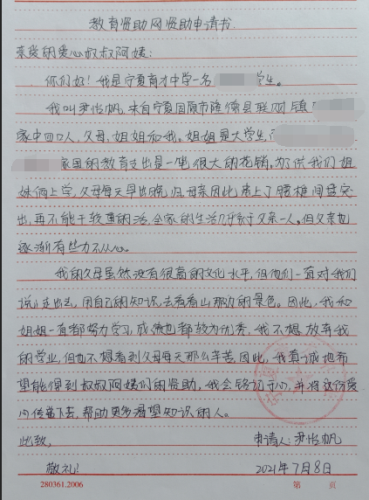 教育资助网资助申请书
亲爱的爱心叔叔阿姨:
你们好!我是宁夏育才中学一名 学生。
我叫尹怡帆,来自宁夏固原市隆德县联财镇
家中四口人,父母,姐姐和我。姐姐是大学生
家里的教育支出是一笔很大的花销,为供我们姐
妹俩上学,父母每天早出晚归母亲因此患上了腰椎间盘突
出,再不能干较重的活,全家的生活几乎靠父亲一人。但父亲也
逐渐有些力不从心。
我的父母虽然没有很高的文化水平,但他们一直对我们
说走出去,用自己的知识去看看山那边的景色。因此,我和
姐姐一直都努力学习,成绩也都较为优秀,我不想放弃我
的学业,但也不想看到父母每天那么辛苦,因此,我真诚地希
望能得到叔叔阿姨们的资助,我会铭记于心,并将这份爱
心传播下去,帮助更多渴望知识的人。
此致,
申请人:尹怡帆
敬礼!
2021年7月8日
280361.2006
第 页